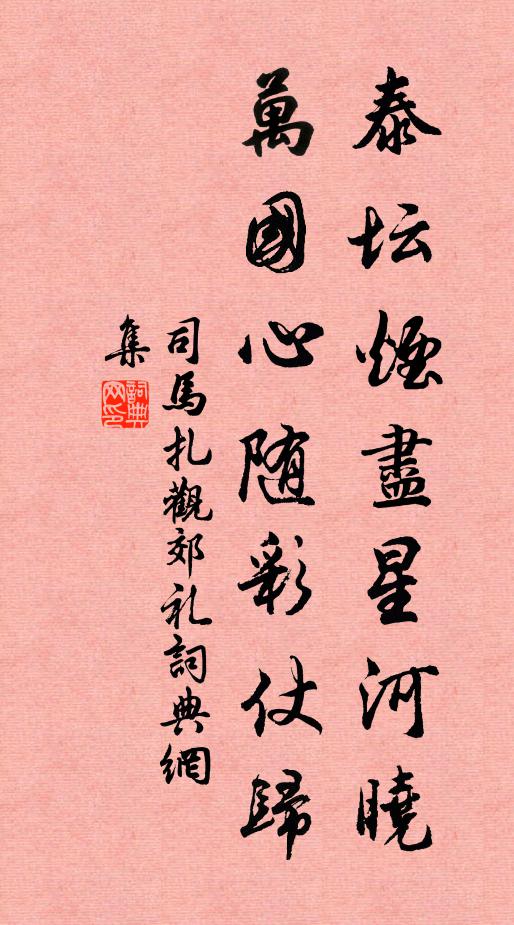 泰坛煙盡星河曉
萬國心随彩仗歸
司馬扎觀郊礼詞典網
集
詞典網印